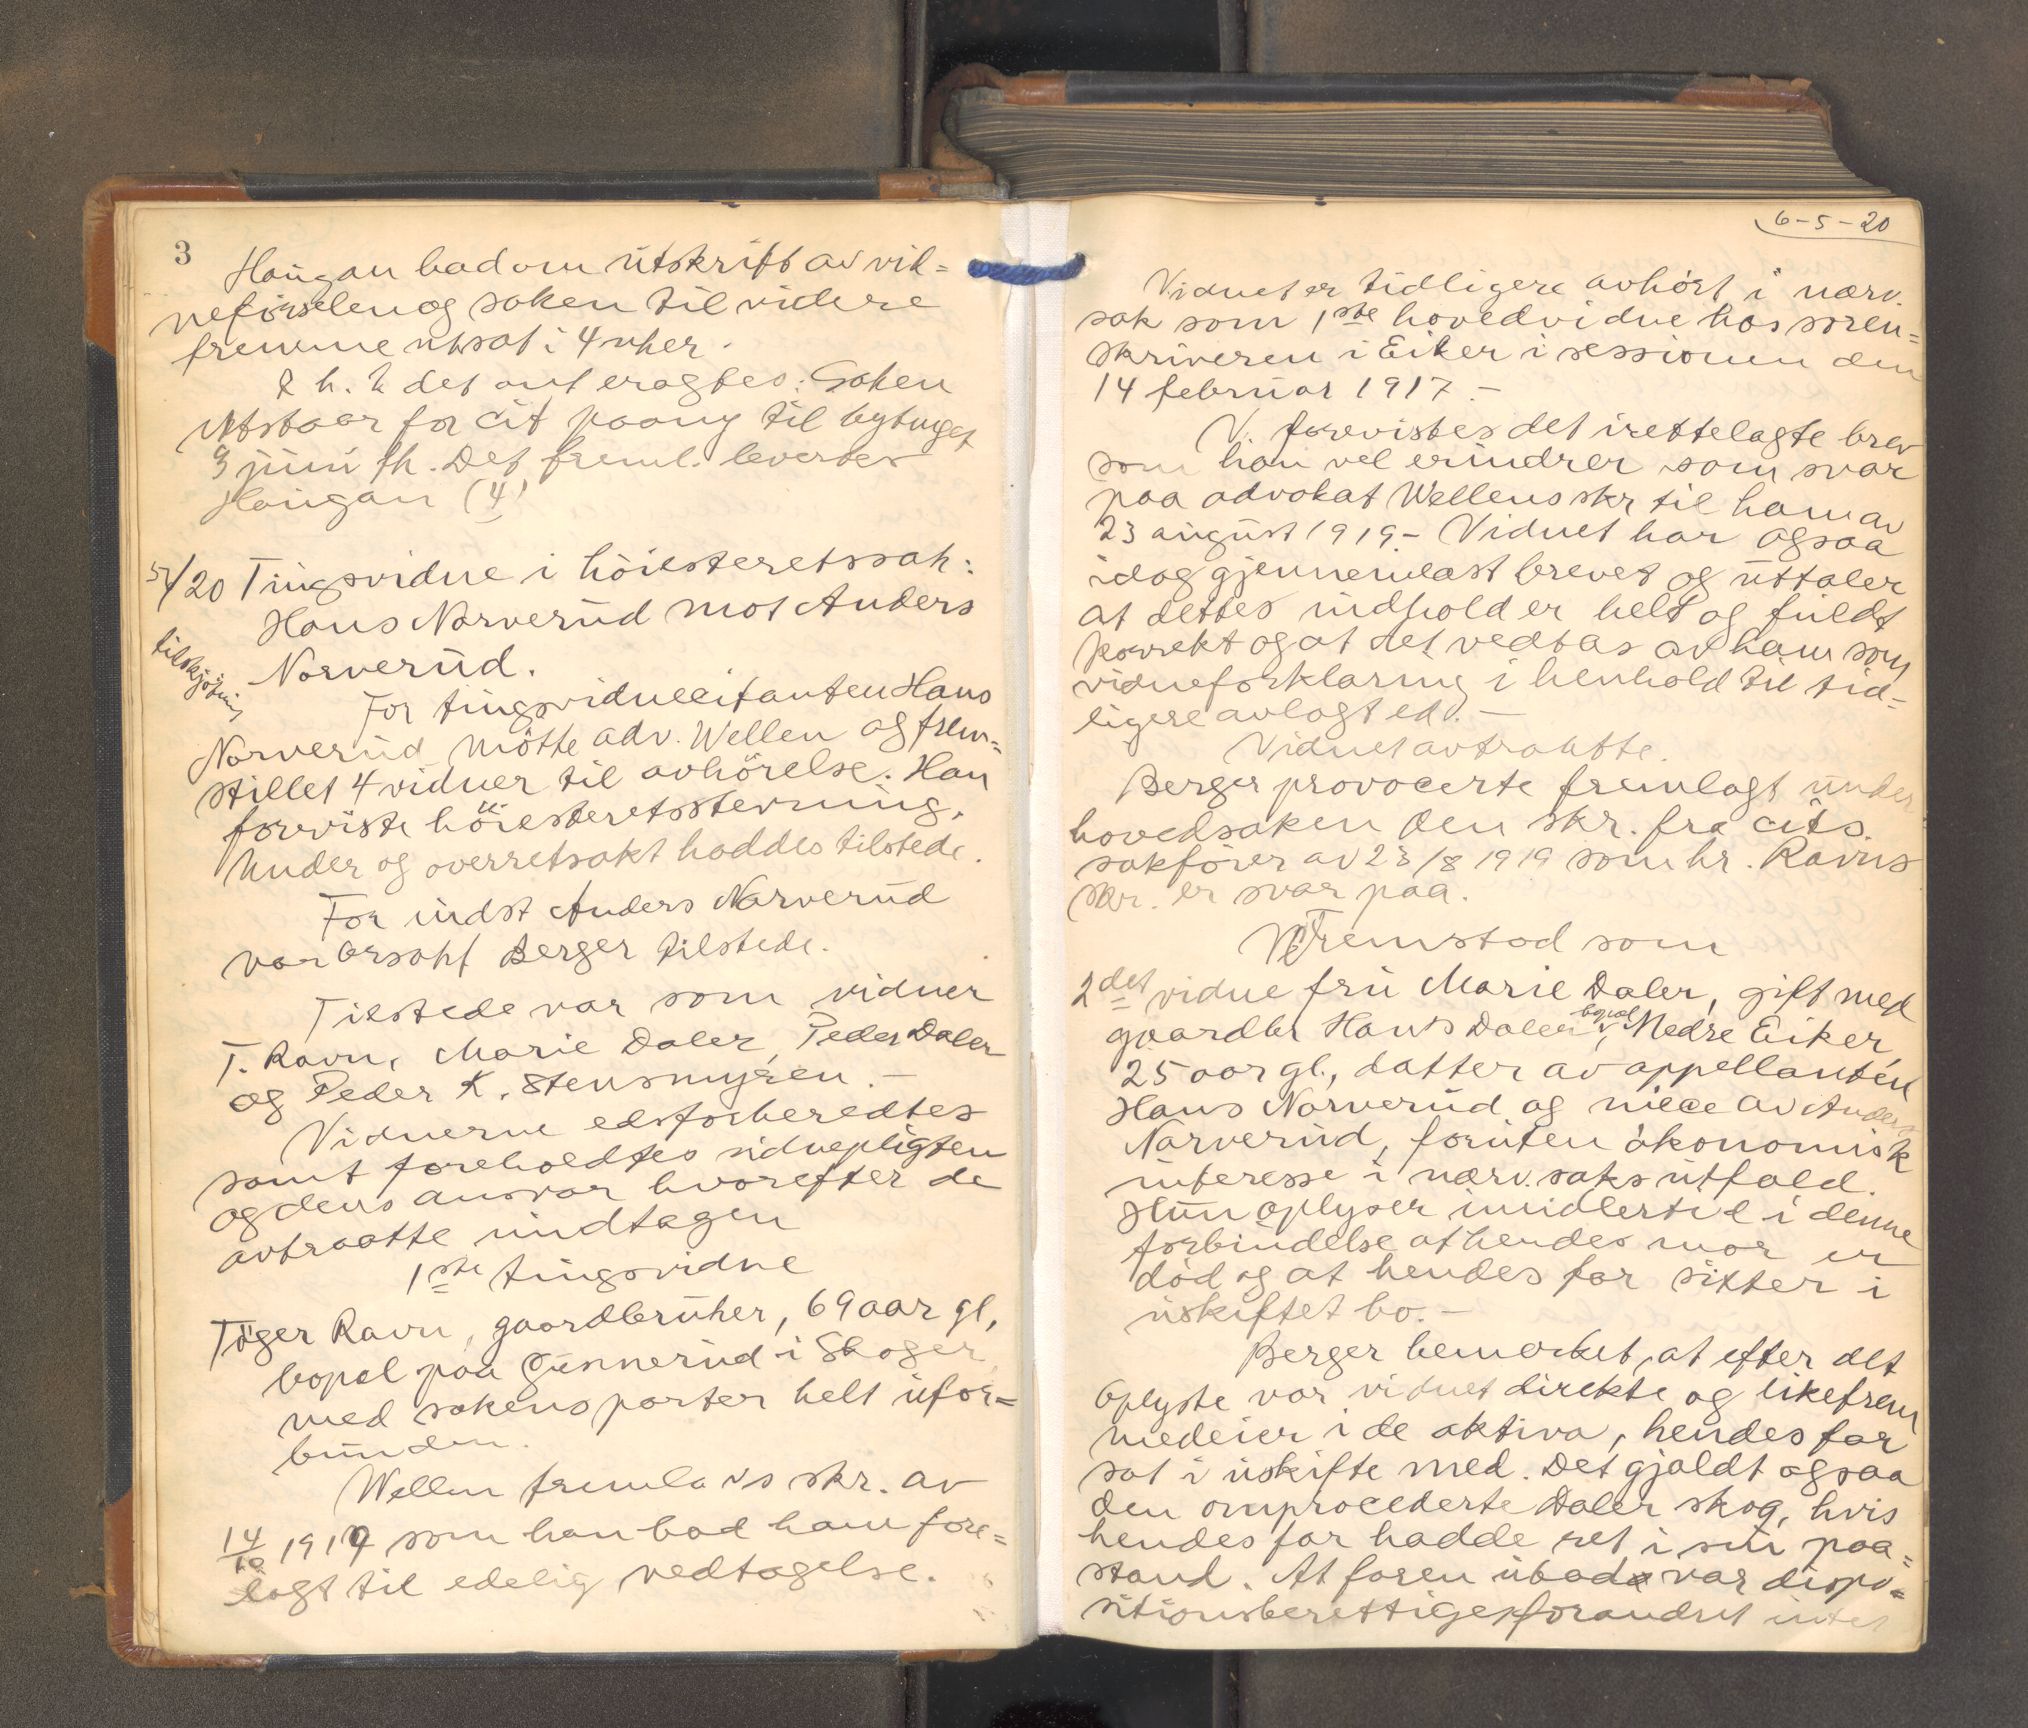 3
Haugan bad om utskrift av vid=
neförselen og saken til videre
fremme utsat i 4 uker.
I h. t. det ant eragtes: Saken
utstaar for cit paany til bytinget
9 juni fk. Det freml. levertes
Haugan (4)
5/20 Tingsvidne i höiesteretssak:
Hans Narverud mot Anders
Narverud.
tilskjöting
For tingsvidnecitanten Hans
Narverud mötte adv. Wellen og frem=
stillet 4 vidner til avhörelse. Han
foreviste höiesteretsstevning.
Under og overretsakt haddes tilstede.
For indst Anders Narverud
var orsakf Berger tilstede.
Tilstede var som vidner
T. Ravn, Marie Daler, Peder Daler
og Peder K. Stensmyren. -
Vidnerne edsforberedtes
samt foreholdtes vidnepligten
og dens ansvar hvorefter de
avtraatte undtagen
1ste tingsvidne
Töger Ravn, gaardbruker, 69 aar gl,
bopæl paa Gunnerud i Skoger,
med sakens parter helt ufor=
bunden.
Wellen fremla vs skr. av
14/10 1919 som han bad ham fore=
lagt til edelig vedtagelse.
6-5-20
Vidnet er tidligere avhørt i nærv.
sak som 1ste hovedvidne hos soren=
skriveren i Eiker i sessionen den
14 februar 1917. -
V. forevistes det irettelagte brev
som han vel erindrer som svar
paa advokat Wellens skr til ham av
23 august 1919. - Vidnet har ogsaa
idag gjennemlæst brevet og uttaler
at dettes indhold er helt og fuldt
korrekt og at det vedtas av ham som
vidneforklaring i henhold til tid=
ligere avlagt ed. -
Vidnet avtraatte.
Berger provocerte fremlagt under
hovedsaken den skr. fra cits.
sakförer av 23/8 1919 som hr. Ravns
skr. er svar paa.
Fremstod som
2det vidne fru Marie Daler, gift med
gaardbr Hans Daler, bopæl Nedre Eiker,
25 aar gl., datter av appellanten
Hans Narverud og niece av Anders
Narverud, foruten ökonomisk
interesse i nærv. saks utfald.
Hun oplyser imidlertid i denne
forbindelse at hendes mor er
död og at hendes far sitter i
uskiftet bo. -
Berger bemerket, at efter det
oplyste var vidnet direkte og likefrem
medeier i de aktiva, hendes far
sat i uskifte med. Det gjaldt ogsaa
den omprocederte Daler skog, hvis
hendes far hadde ret i sin paa=
stand. At faren var dispo=
sitionsberettiget forandret intet